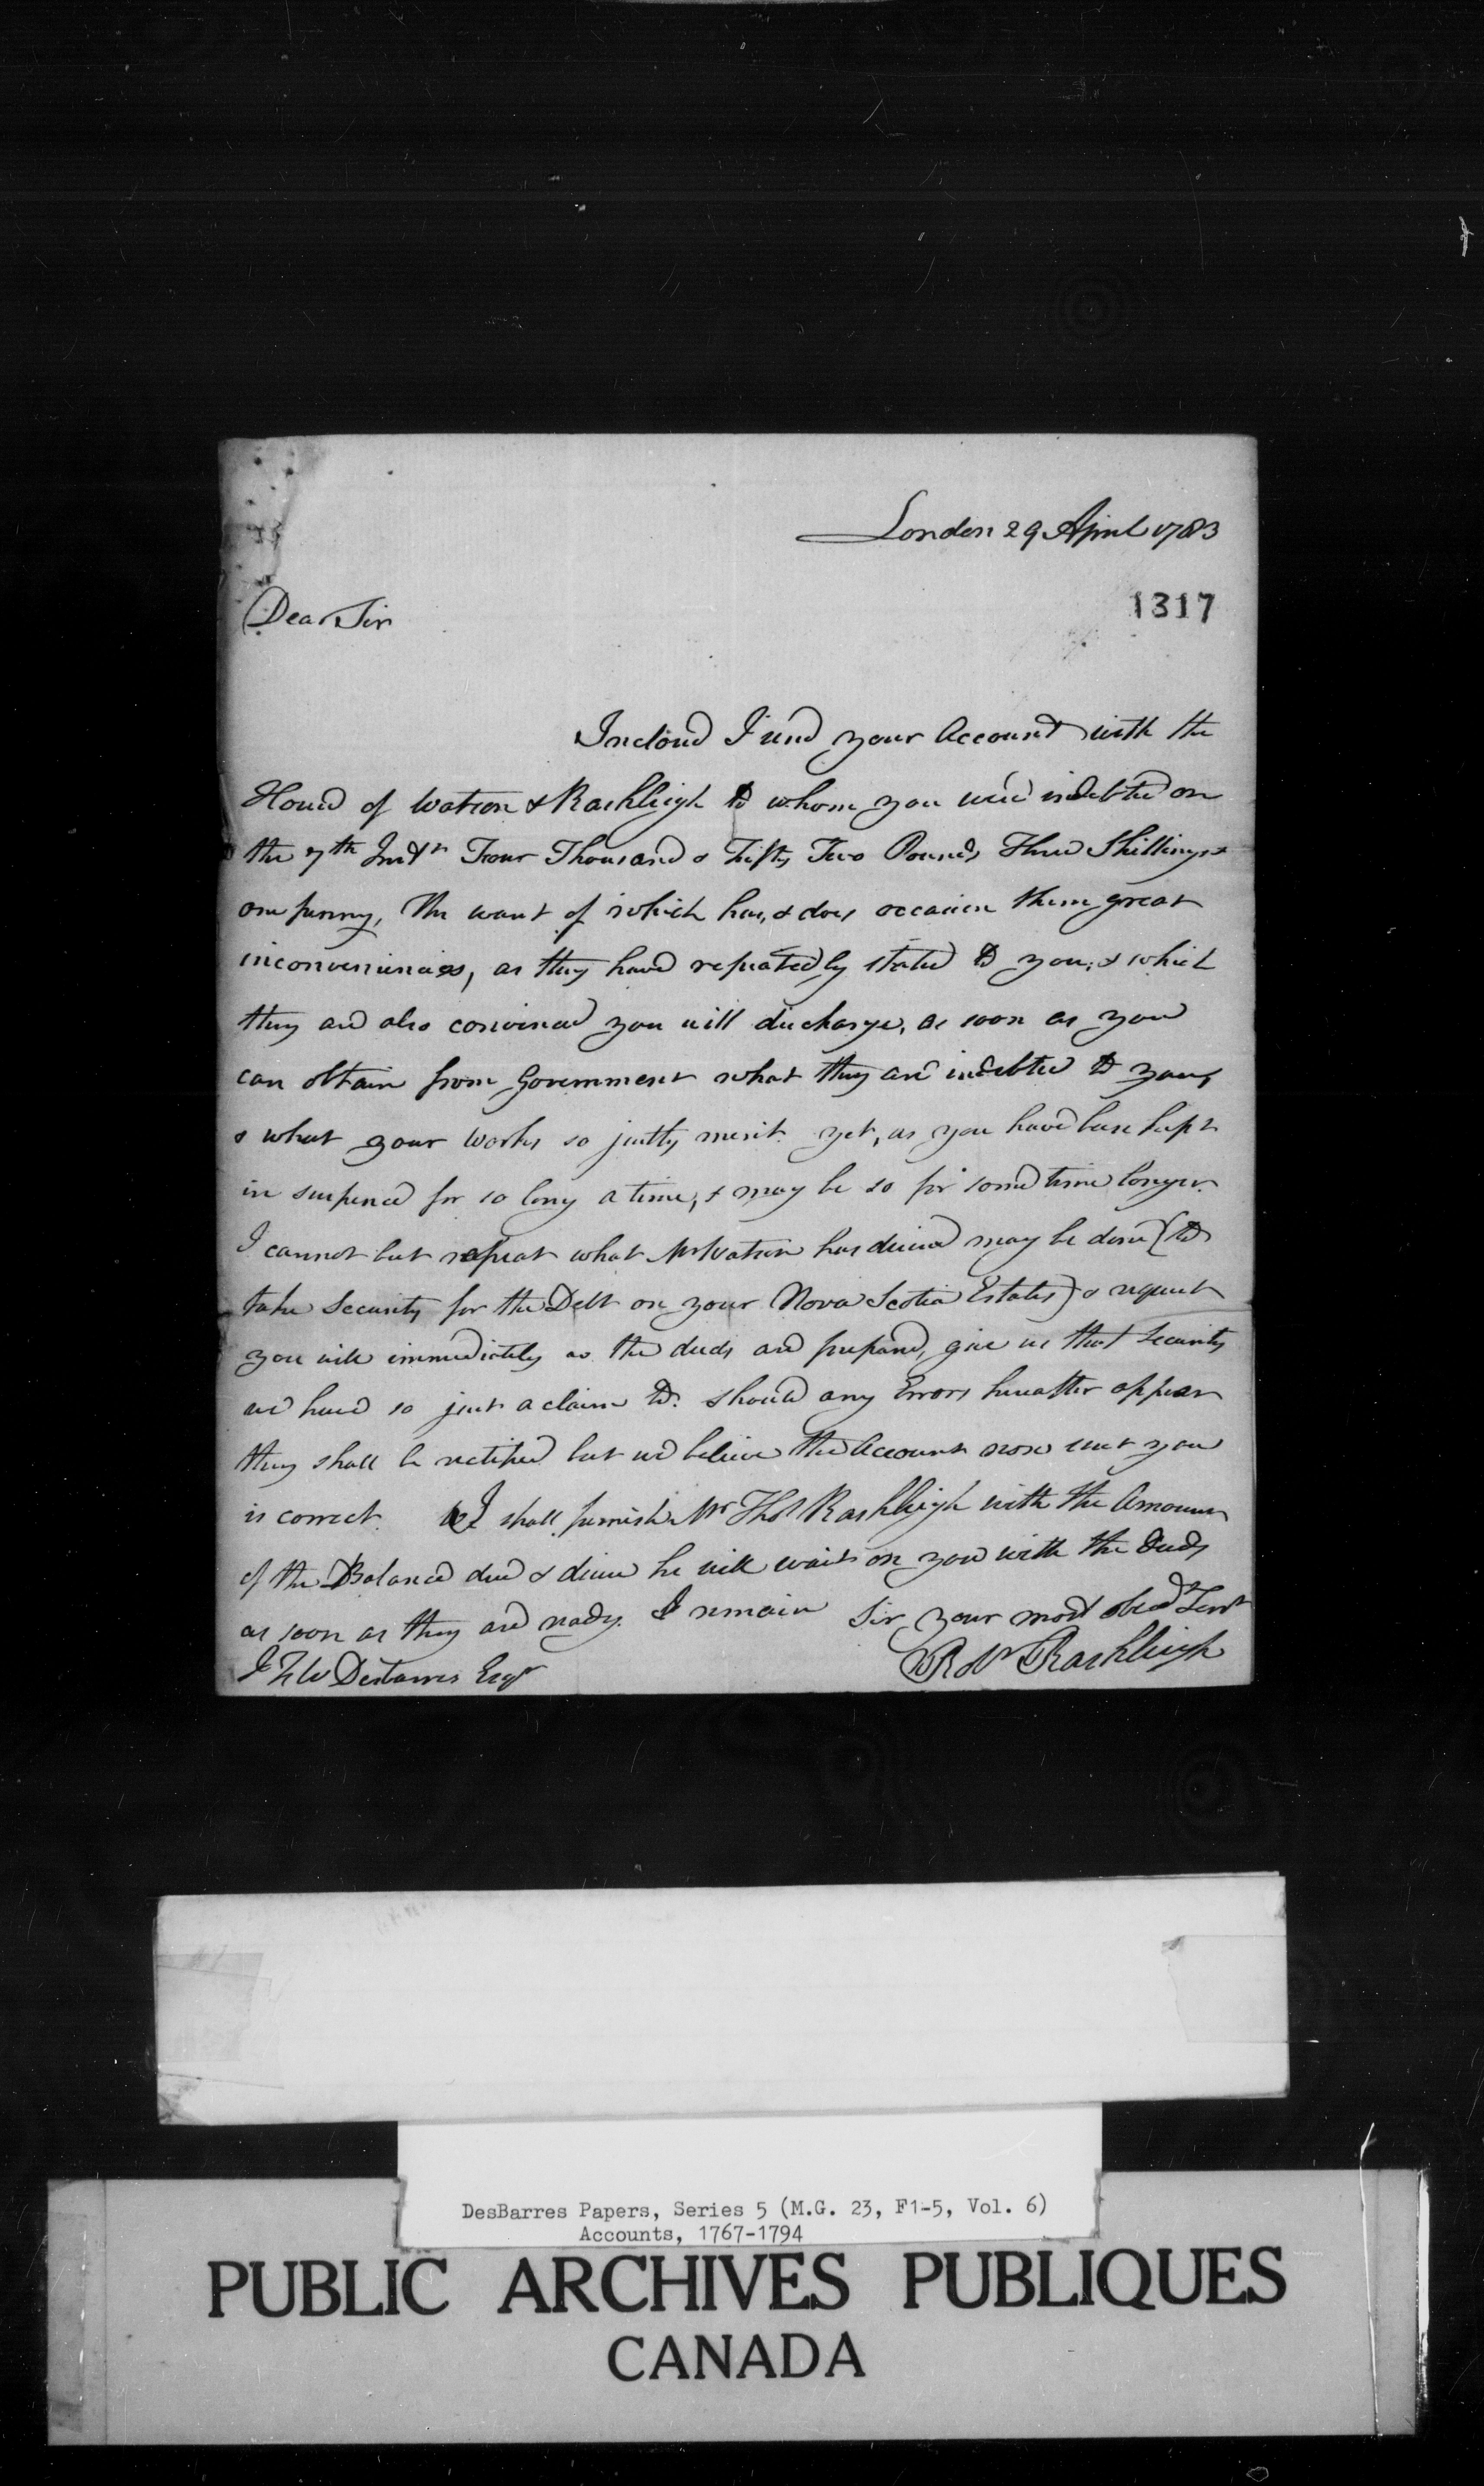 London 29 April 1783
1317
Dear Sir
Inclosed I send your Account with the
House of Watson & Rashleigh to whom you were indebted on
the 7th Instt Four Thousand & Fifty Two Pounds Three Shillings &
one penny, the want of which has, & does occasion them great
inconveniencies, as they have repeatedly stated to you; & which
they are also convinced you will discharge, as soon as you
can obtain from Government what they are indebted to you,
& what your Works so justly merit. yet, as you have been kept
in suspence for so long a time, & may be so for some time longer.
I cannot but repeat what Mr Watson has desired may be done (to
take Security for the Debt on your Nova Scotia Estates) & request
you will immediately as the deeds are prepared, give us that Security
we have so just a claim to. should any Errors hereafter appear
they shall be rectified but we believe the Account now sent you
is correct. I shall furnish Mr Thos Rashleigh with the Amount
of the Balance due & desire he will wait on you with the deeds
as soon as they are ready. I remain Sir, your most obed Servt
Robt Rashleigh
J F W Desbarres Esqr
DesBarres Papers, Series 5 (M.G. 23, F1-5, Vol. 6)
Accounts, 1767-1794
PUBLIC ARCHIVES PUBLIQUES
CANADA